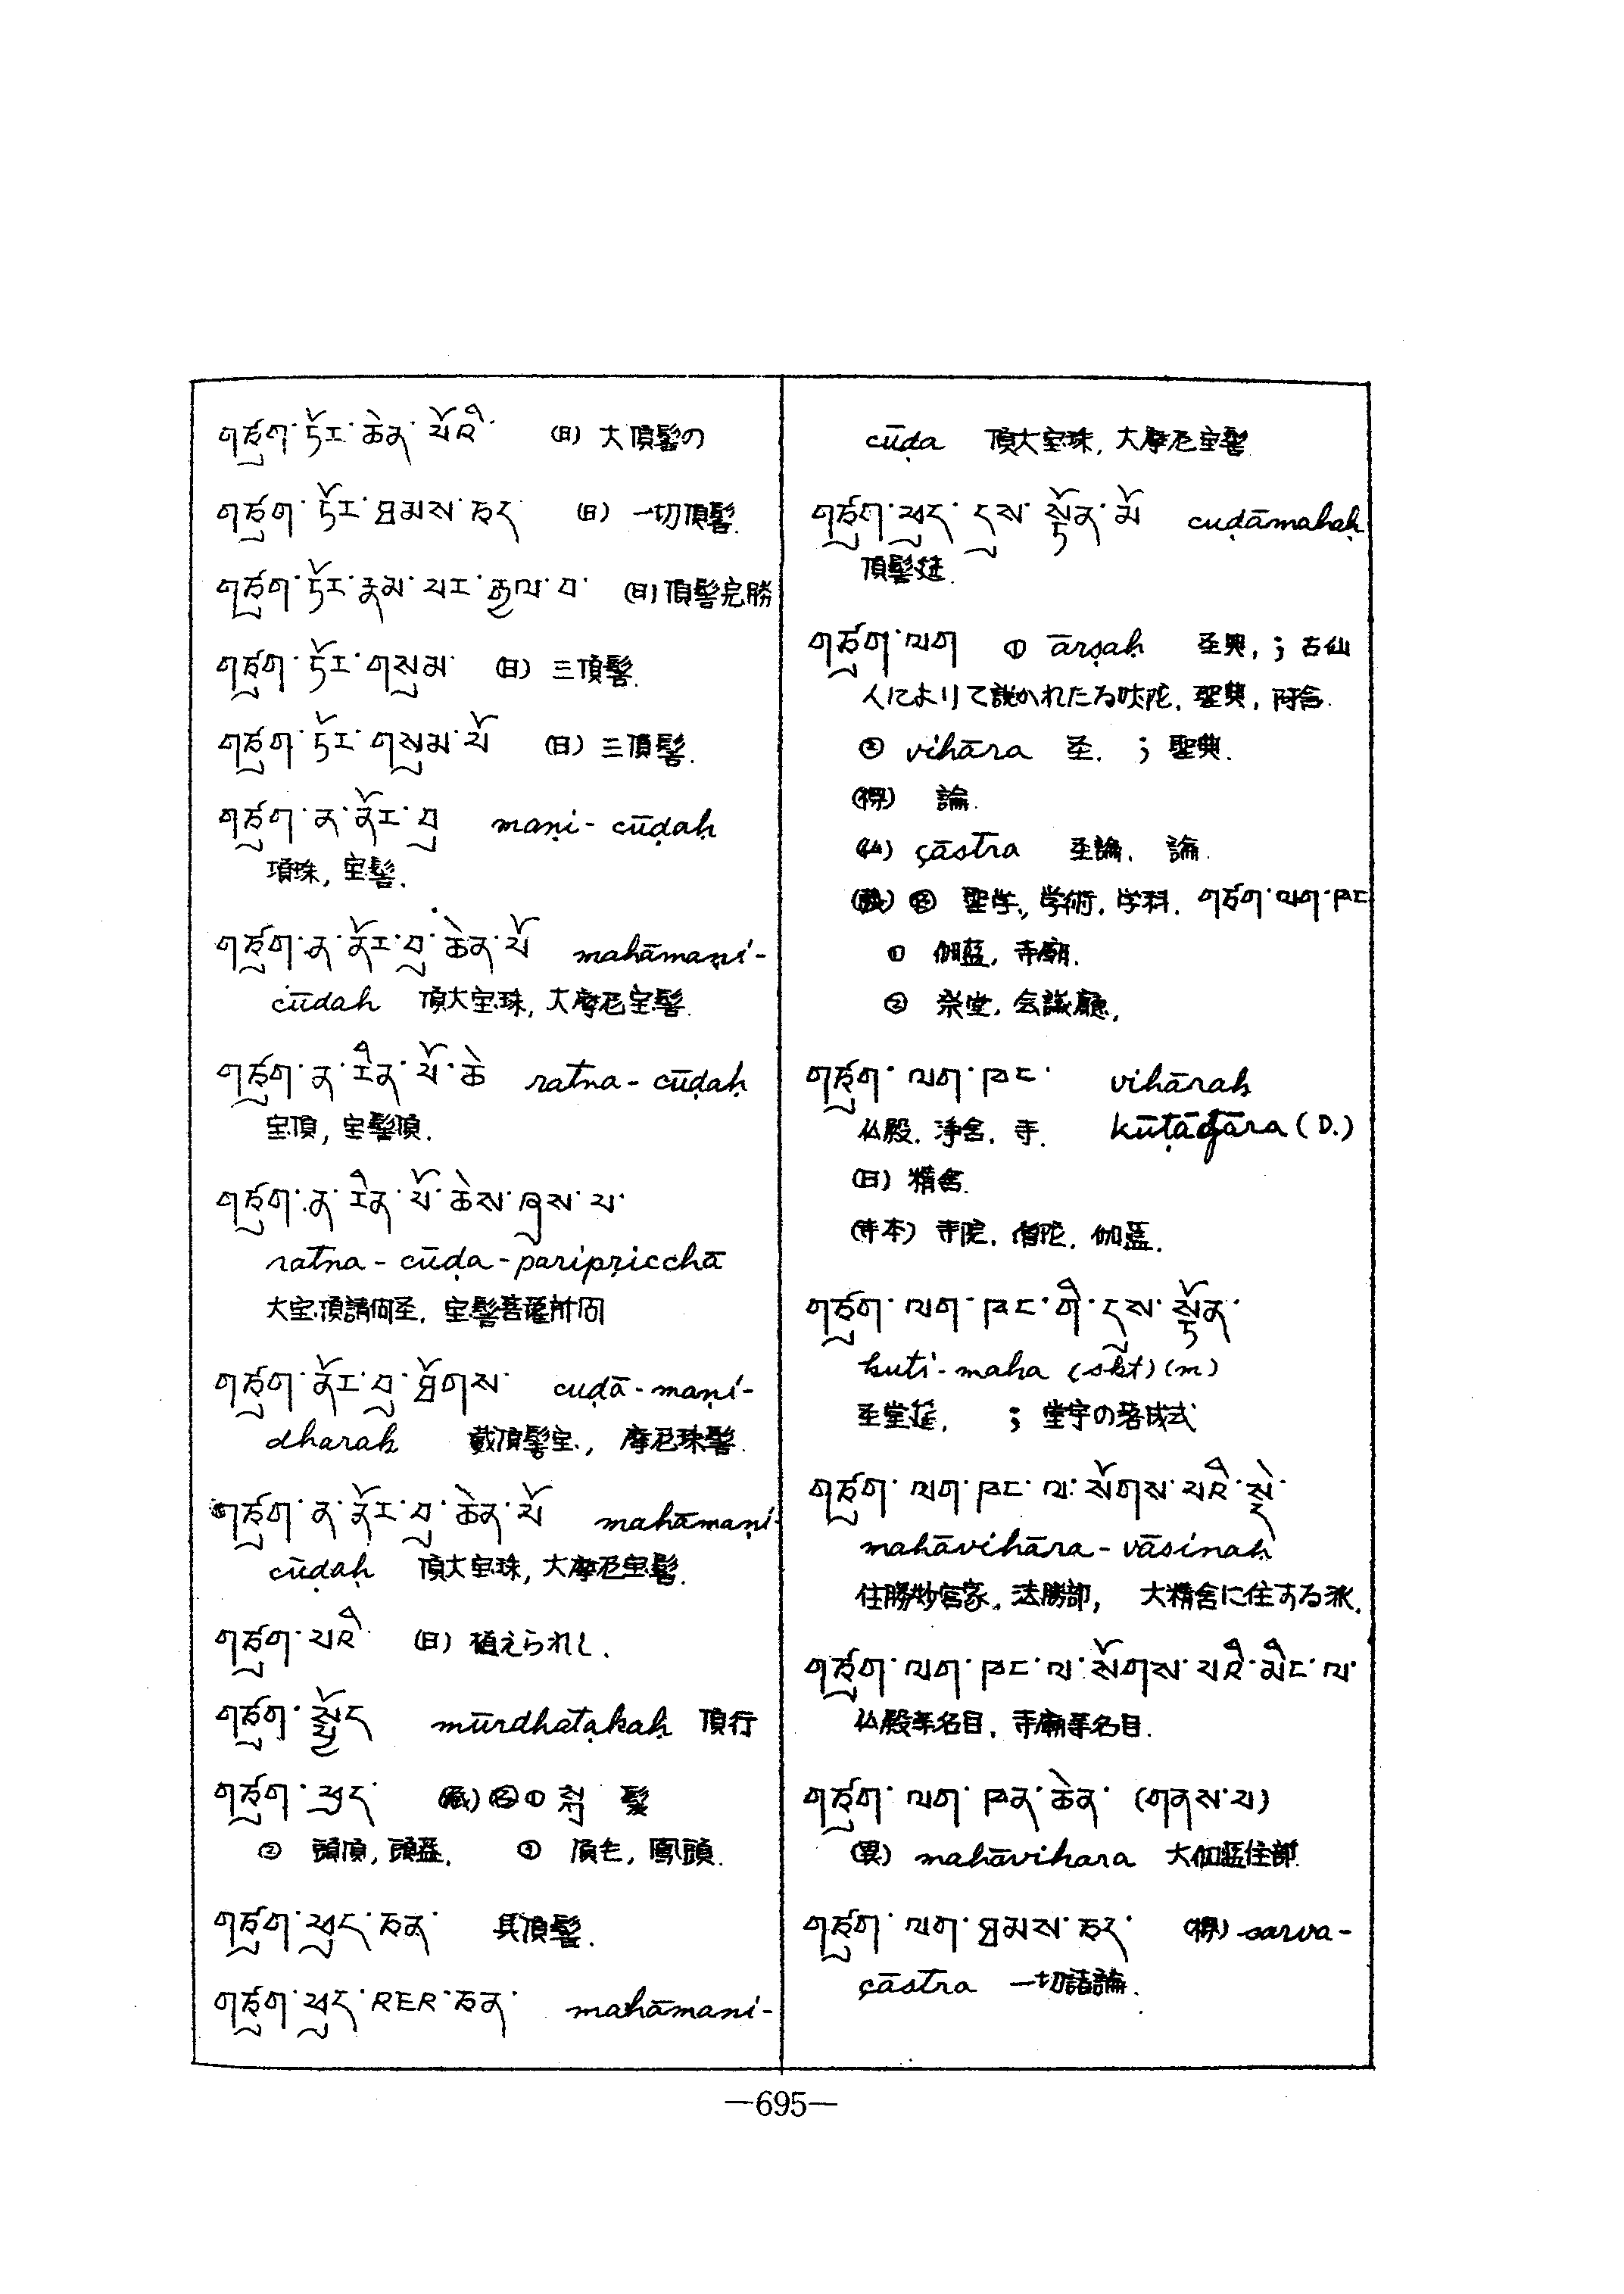 གཙུག་ཏོར་ཆེན་པོའི་ (日) 大頂髻の
གཙུག་ཏོར་ཐམས་ཅད (日) 一切頂髻.
གཙུག་ཏོར་རྣམ་པར་རྒྱལ་བ་ (日) 頂髻完勝
གཙུག་ཏོར་གསུམ་ (日) 三頂髻.
གཙུག་ཏོར་གསུམ་པོ (日) 三頂髻.
གཙུག་ན་ནོར་བུ maṇi-cūḍaḥ
項珠, 宝髻.
གཙུག་ན་ནོར་བུ་ཆེན་པོ mahāmaṇi-
cūdah 頂大宝珠, 大摩尼宝髻.
གཙུག་ན་རིན་པོ་ཆེ ratna-cūḍaḥ
宝頂, 宝髻頂.
གཙུག་ན་རིན་པོ་ཆེས་ཞུས་པ་
ratna-cūḍa-paripṛicchā
大宝頂請問圣, 宝髻菩薩所问
གཙུག་ནོར་བུ་ཐོགས་ cuḍā-maṇi-
dharaḥ 戴頂髻宝, 摩尼珠髻.
གཙུག་ན་ནོར་བུ་ཆེན་པོ mahāmaṇi-
cūḍaḥ 頂大宝珠, 大摩尼宝髻.
གཙུག་པའི་ (日) 植えられし.
གཙུག་སྤྱོད mūrdhaṭakaḥ 頂行
གཙུག་ཕུད་ (藏) ① 髮
② 頭頂, 頭蓋. ③ 頂毛, 鳳頭.
གཙུག་ཕུད་ཅན་ 具頂髻.
གཙུག་ཕུད་RER་ཅན་ mahāmani-
cūḍa 頂大宝珠, 大摩尼宝髻
གཙུག་ཕུད་དུས་སྟོན་མོ cuḍāmahaḥ
頂髻筵.
གཙུག་ལག ① ārṣaḥ 圣典, ; 古仙
人によりて説かれたる吠陀, 聖典, 阿含.
② vihāra 圣. ; 聖典.
(得) 論.
(仏) çāstra 圣論, 論.
(藏) 聖学, 学術, 学科. གཙུག་ལག་ཁང
① 伽藍, 寺廟.
② 祭堂, 会議廳,
གཙུག་ལག་ཁང་ vihāraḥ
仏殿, 浄舎, 寺. kūṭāgāra (D.)
(日) 精舎.
(寺本) 寺院, 僧陀, 伽藍.
གཙུག་ལག་ཁང་གི་དུས་སྟོན་
kuti-maha (skt) (m)
圣堂筵, ; 堂宇の落成式
གཙུག་ལག་ཁང་ལ་སོགས་པའི་སྡེ་
mahāvihāra-vāsinaḥ
住勝妙宮家, 法勝部, 大精舎に住する派.
གཙུག་ལག་ཁང་ལ་སོགས་པའི་མིང་ལ་
仏殿等名目, 寺廟等名目.
གཙུག་ལག་ཁན་ཆེན་ (གནས་པ)
(異) mahāvihara 大伽藍住部.
གཙུག་ལག་ཐམས་ཅད་ (得) sarva-
çāstra 一切諸論.
—695—